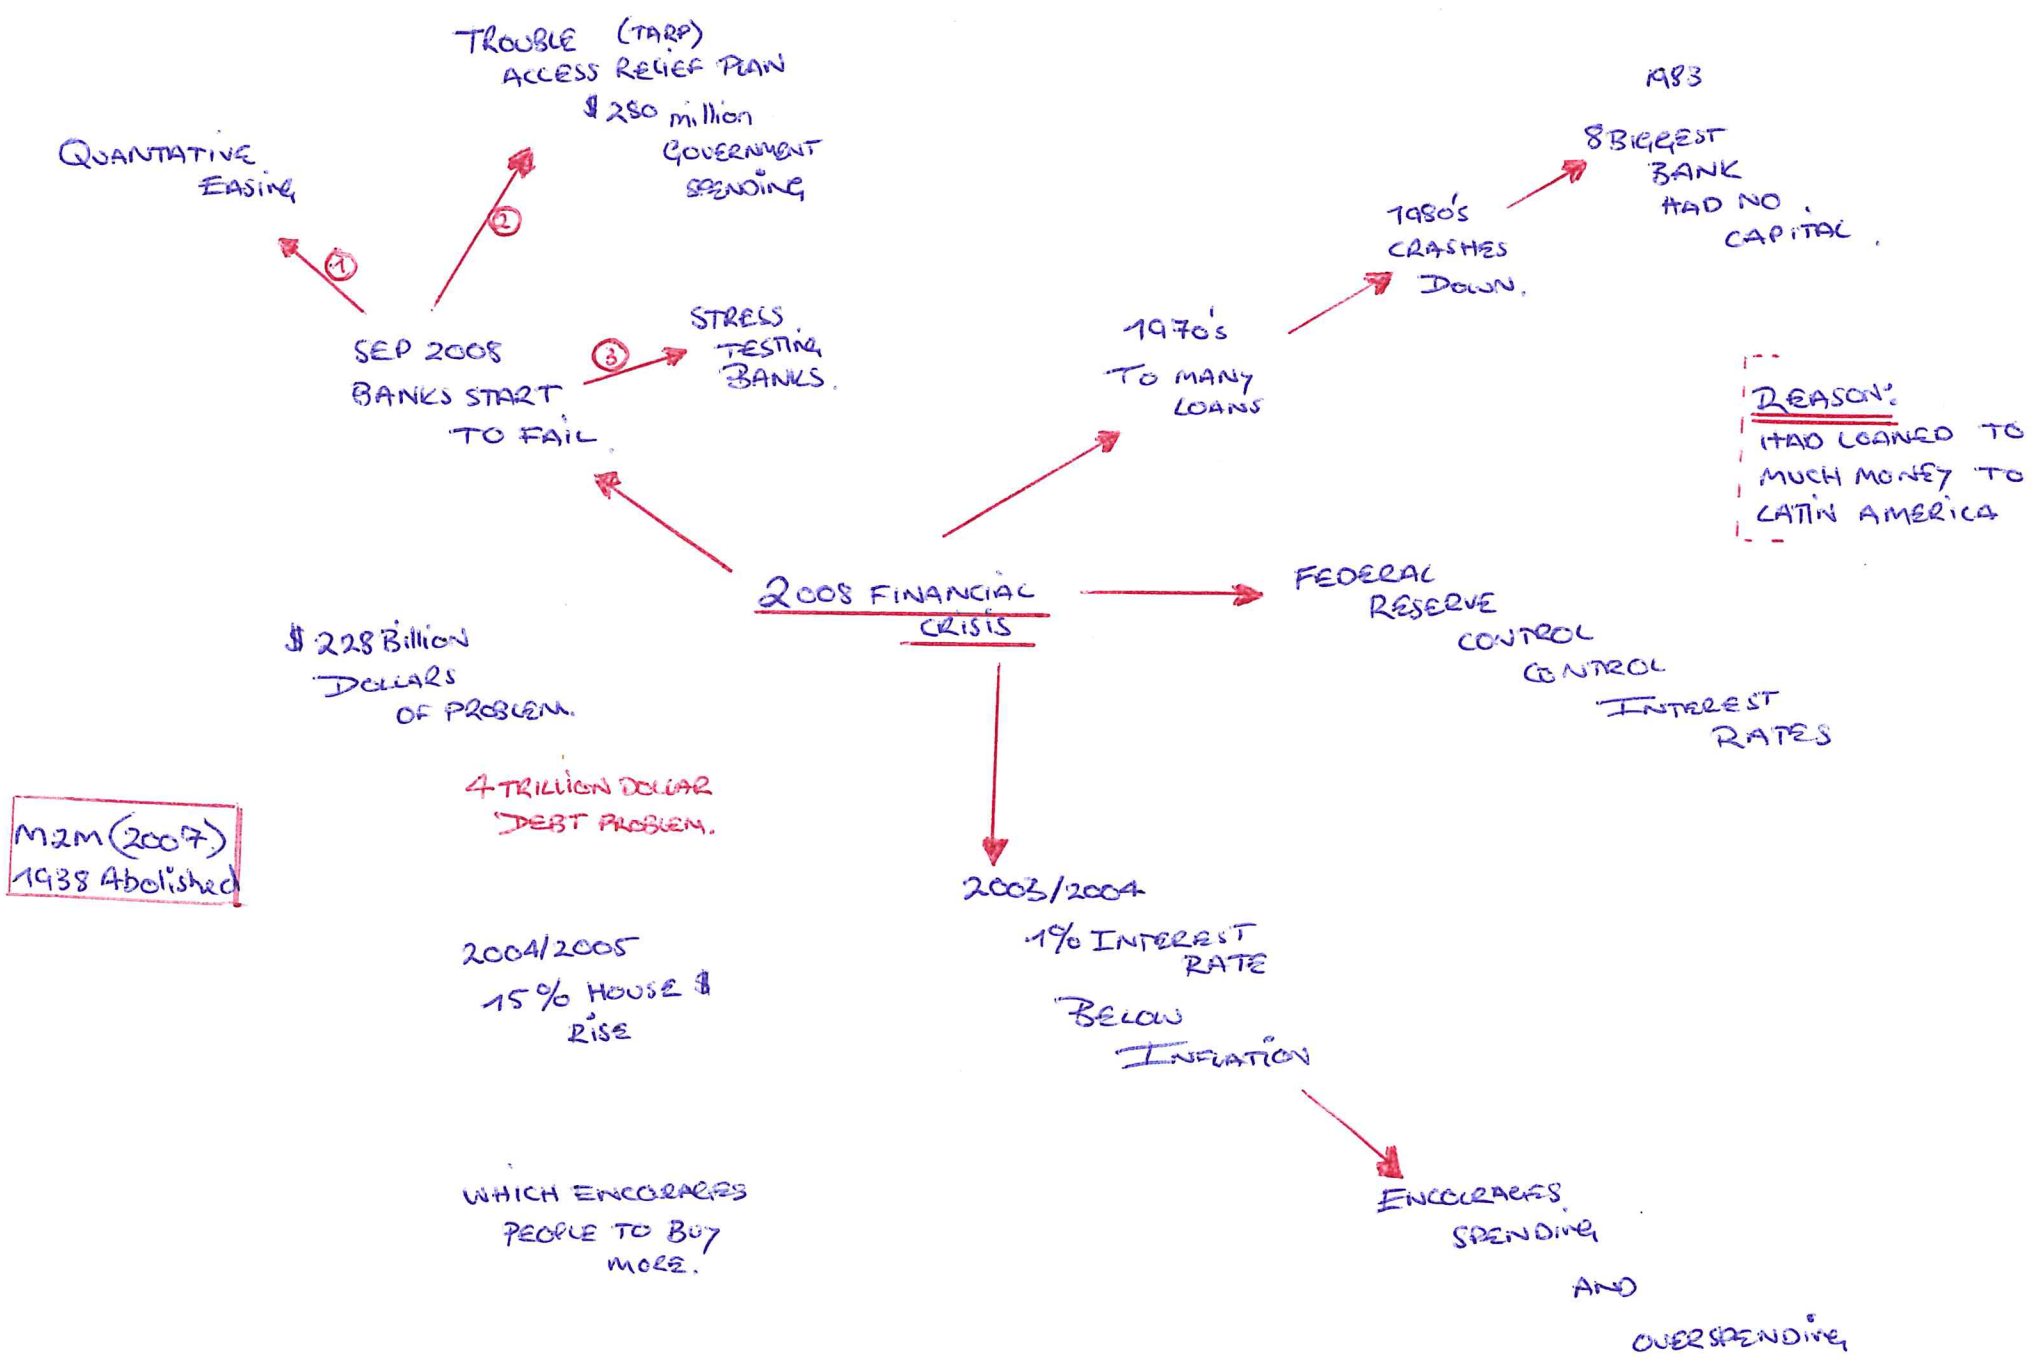 TROUBLE (TARP)
ACCESS RELIEF PLAN
$ 250 million
GOVERNMENT
SPENDING
QUANTATIVE
EASING
1
2
SEP 2008
BANKS START
TO FAIL.
3
STRESS
TESTING
BANKS.
1983
8 BIGGEST
BANK
HAD NO
CAPITAL.
1980's
CRASHES
DOWN.
1970's
TO MANY
LOANS
REASON:
HAD LOANED TO
MUCH MONEY TO
LATIN AMERICA
2008 FINANCIAL
CRISIS
FEDERAL
RESERVE
CONTROL
CONTROL
INTEREST
RATES
$ 228 Billion
DOLLARS
OF PROBLEM.
4 TRILLION DOLLAR
DEBT PROBLEM.
M2M (2007)
1938 Abolished
2004/2005
15% HOUSE $
RISE
WHICH ENCORAGES
PEOPLE TO BUY
MORE.
2003/2004
1% INTEREST
RATE
BELOW
INFLATION
ENCOURAGES
SPENDING
AND
OVERSPENDING